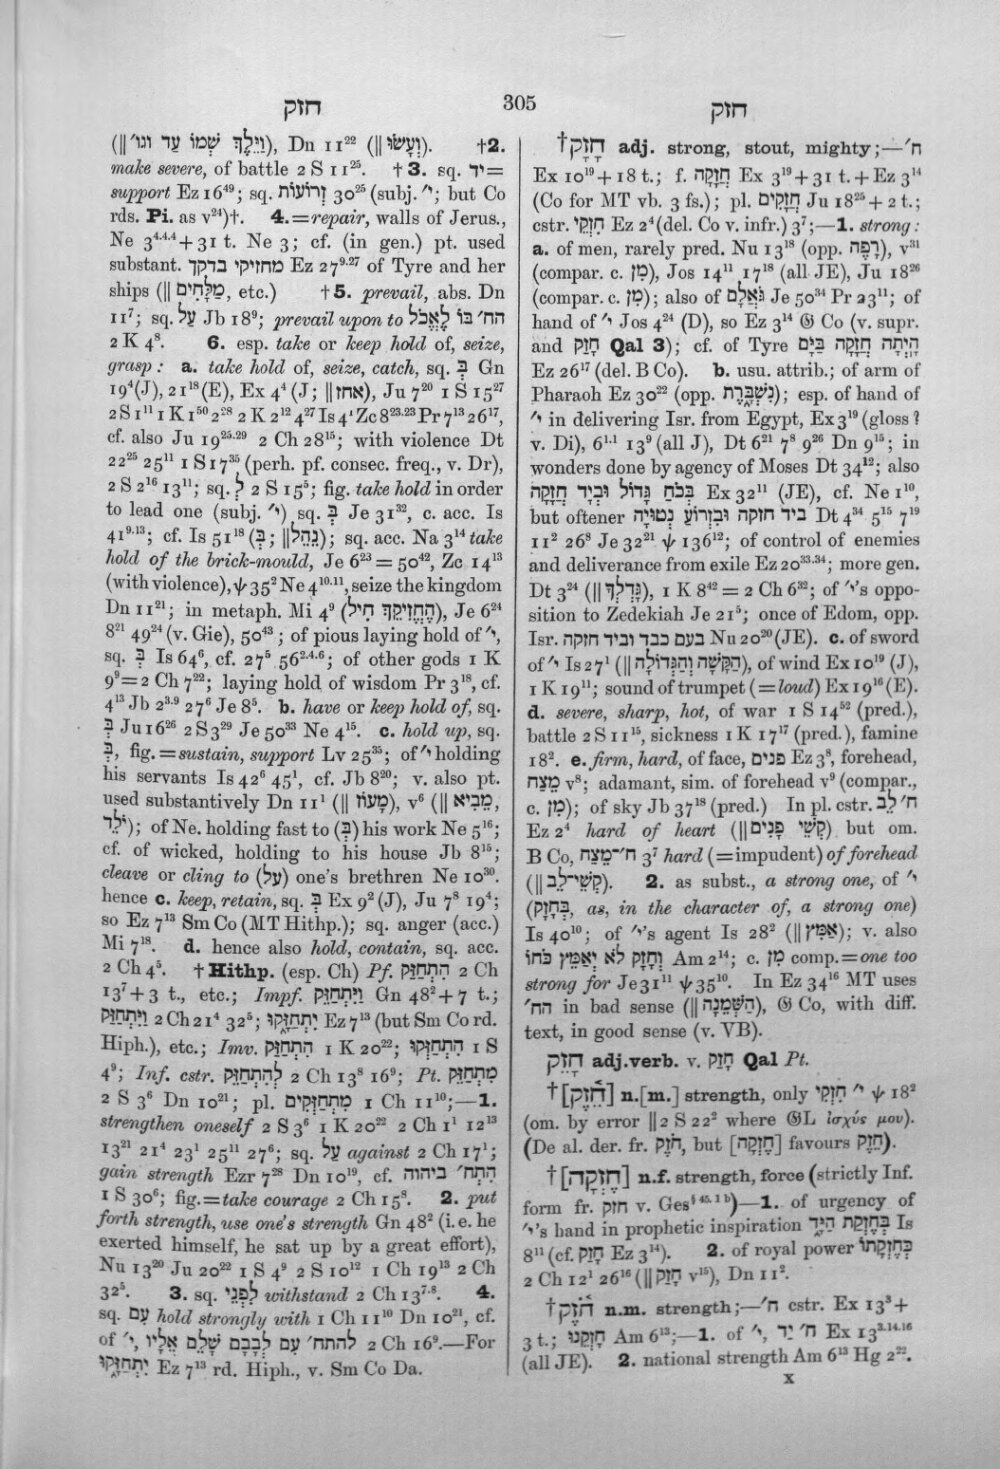 חזק
305
חזק
(‖ וַיֵּלֶךְ שְׁמוֹ עַד וגו׳), Dn 11²² (‖ וְעָשׂוּ). †2.
make severe, of battle 2 S 11²⁵. †3. sq. יד=
support Ez 16⁴⁹; sq. זְרוֹעוֹת 30²⁵ (subj. י׳; but Co
rds. Pi. as v²⁴)†. 4.=repair, walls of Jerus.,
Ne 3⁴·⁴·⁴+31 t. Ne 3; cf. (in gen.) pt. used
substant. מחזיקי בדקך Ez 27⁹·²⁷ of Tyre and her
ships (‖ מַלָּחִים, etc.) †5. prevail, abs. Dn
11⁷; sq. עַל Jb 18⁹; prevail upon to הח׳ בּוֹ לֶאֱכֹל
2 K 4⁸. 6. esp. take or keep hold of, seize,
grasp: a. take hold of, seize, catch, sq. בְּ Gn
19⁴(J), 21¹⁸(E), Ex 4⁴ (J; ‖ אחז), Ju 7²⁰ 1 S 15²⁷
2 S 1¹¹ 1 K 1⁵⁰ 2²⁸ 2 K 2¹² 4²⁷ Is 4¹ Zc 8²³·²³ Pr 7¹³ 26¹⁷,
cf. also Ju 19²⁵·²⁹ 2 Ch 28¹⁵; with violence Dt
22²⁵ 25¹¹ 1 S 17³⁵ (perh. pf. consec. freq., v. Dr),
2 S 2¹⁶ 13¹¹; sq. לְ 2 S 15⁵; fig. take hold in order
to lead one (subj. י׳) sq. בְּ Je 31³², c. acc. Is
41⁹·¹³; cf. Is 51¹⁸ (בְּ; ‖ נִהֵל); sq. acc. Na 3¹⁴ take
hold of the brick-mould, Je 6²³ = 50⁴², Zc 14¹³
(with violence), ψ 35² Ne 4¹⁰·¹¹, seize the kingdom
Dn 11²¹; in metaph. Mi 4⁹ (הֶחֱזִיקֵךְ חִיל), Je 6²⁴
8²¹ 49²⁴ (v. Gie), 50⁴³; of pious laying hold of י׳,
sq. בְּ Is 64⁶, cf. 27⁵ 56²·⁴·⁶; of other gods 1 K
9⁹=2 Ch 7²²; laying hold of wisdom Pr 3¹⁸, cf.
4¹³ Jb 2³·⁹ 27⁶ Je 8⁵. b. have or keep hold of, sq.
בְּ Ju 16²⁶ 2 S 3²⁹ Je 50³³ Ne 4¹⁵. c. hold up, sq.
בְּ, fig.=sustain, support Lv 25³⁵; of י׳ holding
his servants Is 42⁶ 45¹, cf. Jb 8²⁰; v. also pt.
used substantively Dn 11¹ (‖ מָעוֹז), v⁶ (‖ מֵבִיא,
יֹלֵד); of Ne. holding fast to (בְּ) his work Ne 5¹⁶;
cf. of wicked, holding to his house Jb 8¹⁵;
cleave or cling to (עַל) one's brethren Ne 10³⁰.
hence c. keep, retain, sq. בְּ Ex 9² (J), Ju 7⁸ 19⁴;
so Ez 7¹³ Sm Co (MT Hithp.); sq. anger (acc.)
Mi 7¹⁸. d. hence also hold, contain, sq. acc.
2 Ch 4⁵. †Hithp. (esp. Ch) Pf. הִתְחַזַּק 2 Ch
13⁷+3 t., etc.; Impf. יִתְחַזֵּק Gn 48²+7 t.;
וַיִּתְחַזַּק 2 Ch 21⁴ 32⁵; יִתְחַזָּ֑קוּ Ez 7¹³ (but Sm Co rd.
Hiph.), etc.; Imv. הִתְחַזַּק 1 K 20²²; הִתְחַזְּקוּ 1 S
4⁹; Inf. cstr. לְהִתְחַזֵּק 2 Ch 13⁸ 16⁹; Pt. מִתְחַזֵּק
2 S 3⁶ Dn 10²¹; pl. מִתְחַזְּקִים 1 Ch 11¹⁰;—1.
strengthen oneself 2 S 3⁶ 1 K 20²² 2 Ch 1¹ 12¹³
13²¹ 21⁴ 23¹ 25¹¹ 27⁶; sq. עַל against 2 Ch 17¹;
gain strength Ezr 7²⁸ Dn 10¹⁹, cf. התח׳ ביהוה
1 S 30⁶; fig.=take courage 2 Ch 15⁸. 2. put
forth strength, use one's strength Gn 48² (i.e. he
exerted himself, he sat up by a great effort),
Nu 13²⁰ Ju 20²² 1 S 4⁹ 2 S 10¹² 1 Ch 19¹³ 2 Ch
32⁵. 3. sq. לִפְנֵי withstand 2 Ch 13⁷·⁸. 4.
sq. עִם hold strongly with 1 Ch 11¹⁰ Dn 10²¹, cf.
of י׳, להתח׳ עִם לְבָבָם שָׁלֵם אֵלָיו 2 Ch 16⁹.—For
יִתְחַזָּ֑קוּ Ez 7¹³ rd. Hiph., v. Sm Co Da.
†חָזָק adj. strong, stout, mighty;—ח׳
Ex 10¹⁹+18 t.; f. חֲזָקָה Ex 3¹⁹+31 t.+Ez 3¹⁴
(Co for MT vb. 3 fs.); pl. חֲזָקִים Ju 18²⁵+2 t.;
cstr. חִזְקֵי Ez 2⁴ (del. Co v. infr.) 3⁷;—1. strong:
a. of men, rarely pred. Nu 13¹⁸ (opp. רָפֶה), v³¹
(compar. c. מִן), Jos 14¹¹ 17¹⁸ (all JE), Ju 18²⁶
(compar. c. מִן); also of גֹּאֲלָם Je 50³⁴ Pr 23¹¹; of
hand of י׳ Jos 4²⁴ (D), so Ez 3¹⁴ 𝔊 Co (v. supr.
and חָזַק Qal 3); cf. of Tyre הָיְתָה חֲזָקָה בַּיָּם
Ez 26¹⁷ (del. B Co). b. usu. attrib.; of arm of
Pharaoh Ez 30²² (opp. נִשְׁבֶּרֶת); esp. of hand of
י׳ in delivering Isr. from Egypt, Ex 3¹⁹ (gloss?
v. Di), 6¹·¹ 13⁹ (all J), Dt 6²¹ 7⁸ 9²⁶ Dn 9¹⁵; in
wonders done by agency of Moses Dt 34¹²; also
בְּכֹחַ גָּדוֹל וּבְיָד חֲזָקָה Ex 32¹¹ (JE), cf. Ne 1¹⁰,
but oftener ביד חזקה ובזרוֹעַ נְטוּיָה Dt 4³⁴ 5¹⁵ 7¹⁹
11² 26⁸ Je 32²¹ ψ 136¹²; of control of enemies
and deliverance from exile Ez 20³³·³⁴; more gen.
Dt 3²⁴ (‖ גָּדְלְךָ), 1 K 8⁴² = 2 Ch 6³²; of י׳'s oppo-
sition to Zedekiah Je 21⁵; once of Edom, opp.
Isr. בעם כבד וביד חזקה Nu 20²⁰ (JE). c. of sword
of י׳ Is 27¹ (‖ הַקָּשָׁה וְהַגְּדוֹלָה), of wind Ex 10¹⁹ (J),
1 K 19¹¹; sound of trumpet (=loud) Ex 19¹⁶ (E).
d. severe, sharp, hot, of war 1 S 14⁵² (pred.),
battle 2 S 11¹⁵, sickness 1 K 17¹⁷ (pred.), famine
18². e. firm, hard, of face, פנים Ez 3⁸, forehead,
מֵצַח v⁸; adamant, sim. of forehead v⁹ (compar.,
c. מִן); of sky Jb 37¹⁸ (pred.) In pl. cstr. ח׳ לֵב
Ez 2⁴ hard of heart (‖ קְשֵׁי פָנִים) but om.
B Co, ח׳־מֵצַח 3⁷ hard (=impudent) of forehead
(‖ קְשֵׁי־לֵב). 2. as subst., a strong one, of י׳
(בְּחָזָק, as, in the character of, a strong one)
Is 40¹⁰; of י׳'s agent Is 28² (‖ אַמִּץ); v. also
וְחָזָק לֹא יְאַמֵּץ כֹּחוֹ Am 2¹⁴; c. מִן comp.=one too
strong for Je 31¹¹ ψ 35¹⁰. In Ez 34¹⁶ MT uses
הח׳ in bad sense (‖ הַשְּׁמֵנָה), 𝔊 Co, with diff.
text, in good sense (v. VB).
חָזֵק adj.verb. v. חָזַק Qal Pt.
†[חֵ֫זֶק] n.[m.] strength, only י׳ חִזְקִי ψ 18²
(om. by error ‖ 2 S 22² where 𝔊L ἰσχύς μου).
(De al. der. fr. חֹזֶק, but [חֶזְקָה] favours חֵזֶק).
†[חֶזְקָה] n.f. strength, force (strictly Inf.
form fr. חזק v. Ges§ 45. 1 b)—1. of urgency of
י׳'s hand in prophetic inspiration בְּחֶזְקַת הַיָּד Is
8¹¹ (cf. חָזַק Ez 3¹⁴). 2. of royal power כְּחֶזְקָתוֹ
2 Ch 12¹ 26¹⁶ (‖ חָזַק v¹⁵), Dn 11².
†חֹ֫זֶק n.m. strength;—ח׳ cstr. Ex 13³+
3 t.; חָזְקֵנוּ Am 6¹³;—1. of י׳, ח׳ יָד Ex 13³·¹⁴·¹⁶
(all JE). 2. national strength Am 6¹³ Hg 2²².
X